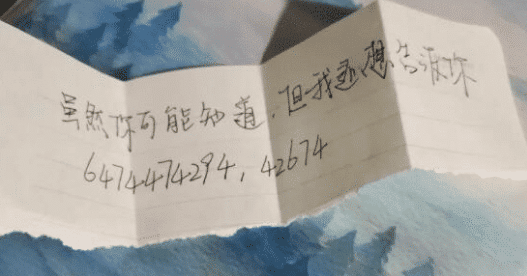 虽然你可能知道，但我还想告诉你
6474474294，42674